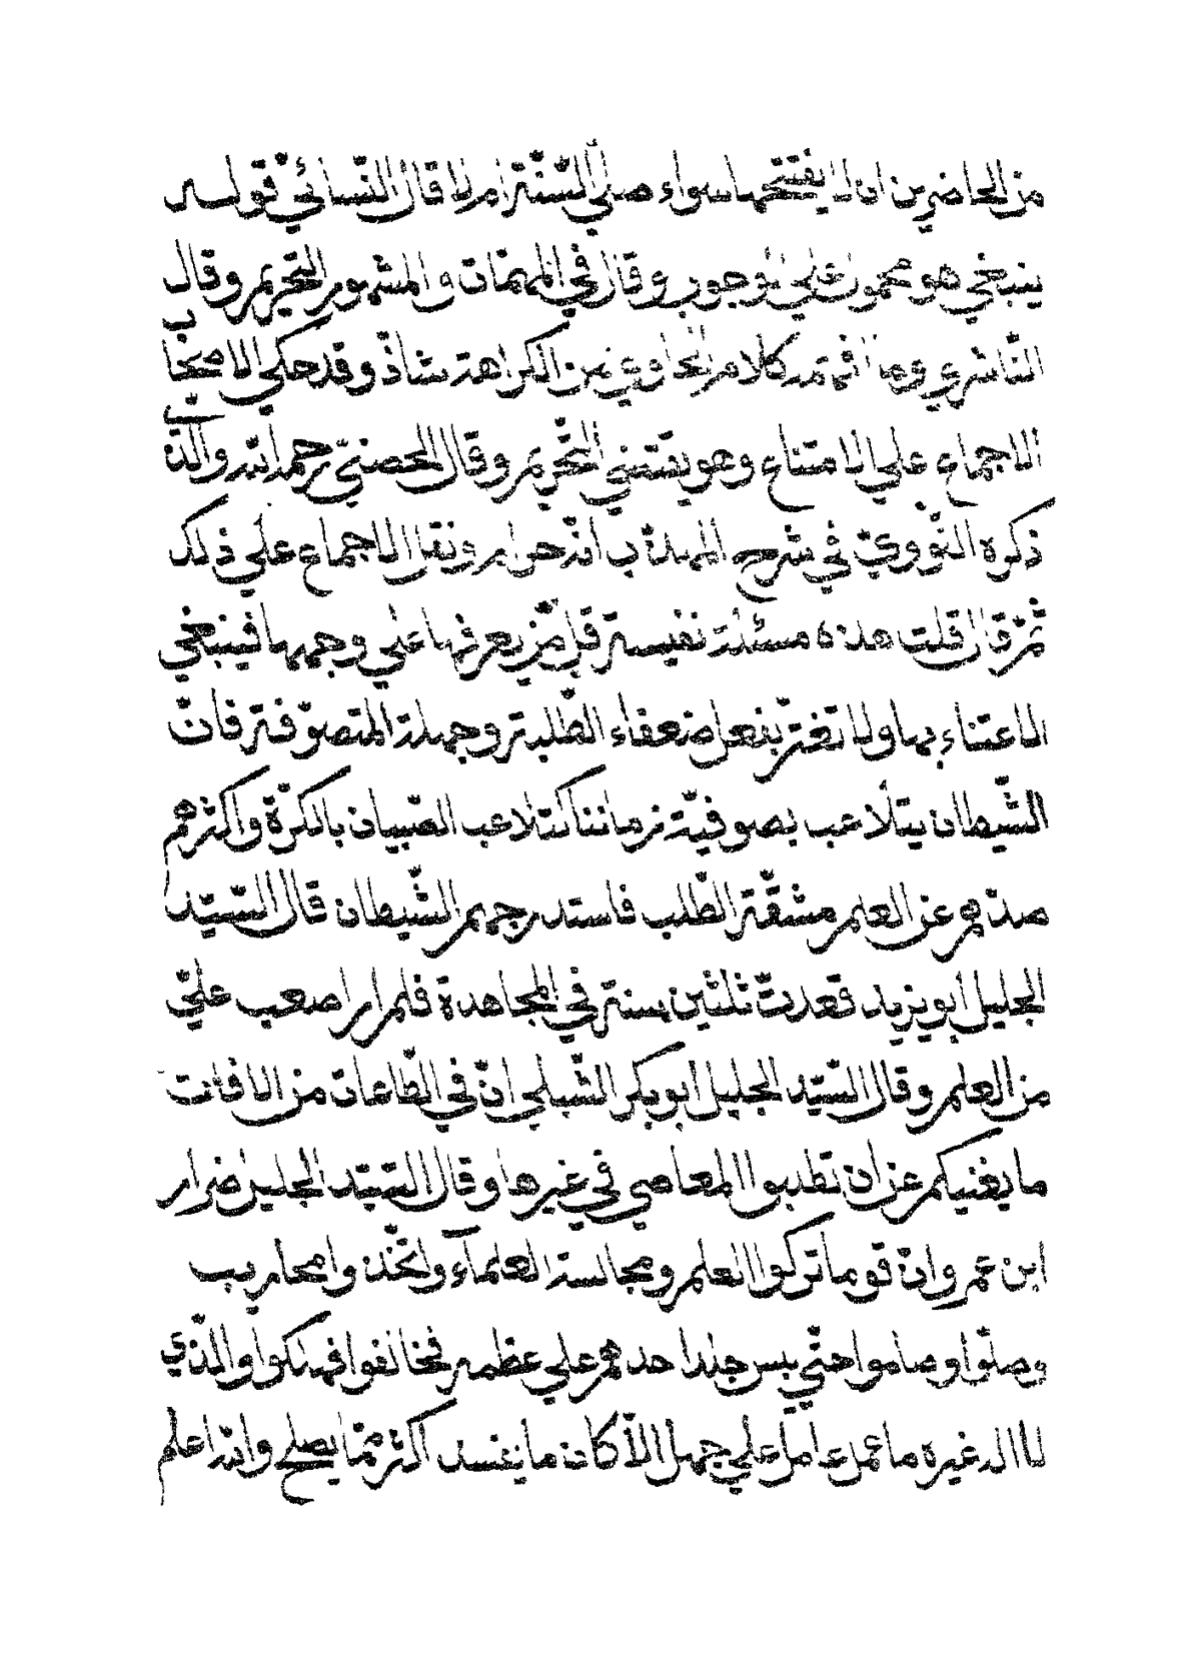 من الحاضرين ان لا يفتتحها سواء صلّي السّنّة ام لا قال النّسائي قوله
ينبغي هو محمول علي الوجوب وقال في المهمّات والمشهور التحريم وقال
النّاشري وما افهمه كلام الحاوي من الكراهة شاذّ وقد حكي الاصحاب
الاجماع علي الامتناع وهو يقتضي التّحريم وقال الحصني رحمه الله والّذي
ذكره النّووي في شرح المهذّب انّه حرام ونقل الاجماع علي ذلك
ثمّ قال قلت هذه مسئلة نفيسة قلّ من يعرفها علي وجهها فينبغي
الاعتناء بها ولا تغترّ بفعل ضعفاء الطّلبة وجهلة المتصوّفة فانّ
الشّيطان يتلاعب بصوفيّة زماننا كتلاعب الصّبيان بالكرة واكثرهم
صدّهم عن العلم مشقّة الطّلب فاستدرجهم الشّيطان قال السّيّد
الجليل ابو يزيد قعدت ثلثين سنة في المجاهدة فلم ار اصعب عليّ
من العلم وقال السّيّد الجليل ابو بكر الشّبلي انّ في الطّاعات من الافات
ما يغنيكم عن ان تطلبوا المعاصي في غيرها وقال السّيّد الجليل ضرار
ابن عمرو انّ قوما تركوا العلم ومجالسة العلمآء واتّخذوا محاريب
وصلّوا وصاموا حتّي يبس جلد احدهم علي عظمه فخالفوا فهلكوا والّذي
لا اله غيره ما عمل عامل علي جهل الّا كان ما يفسد اكثر ممّا يصلح والله اعلم